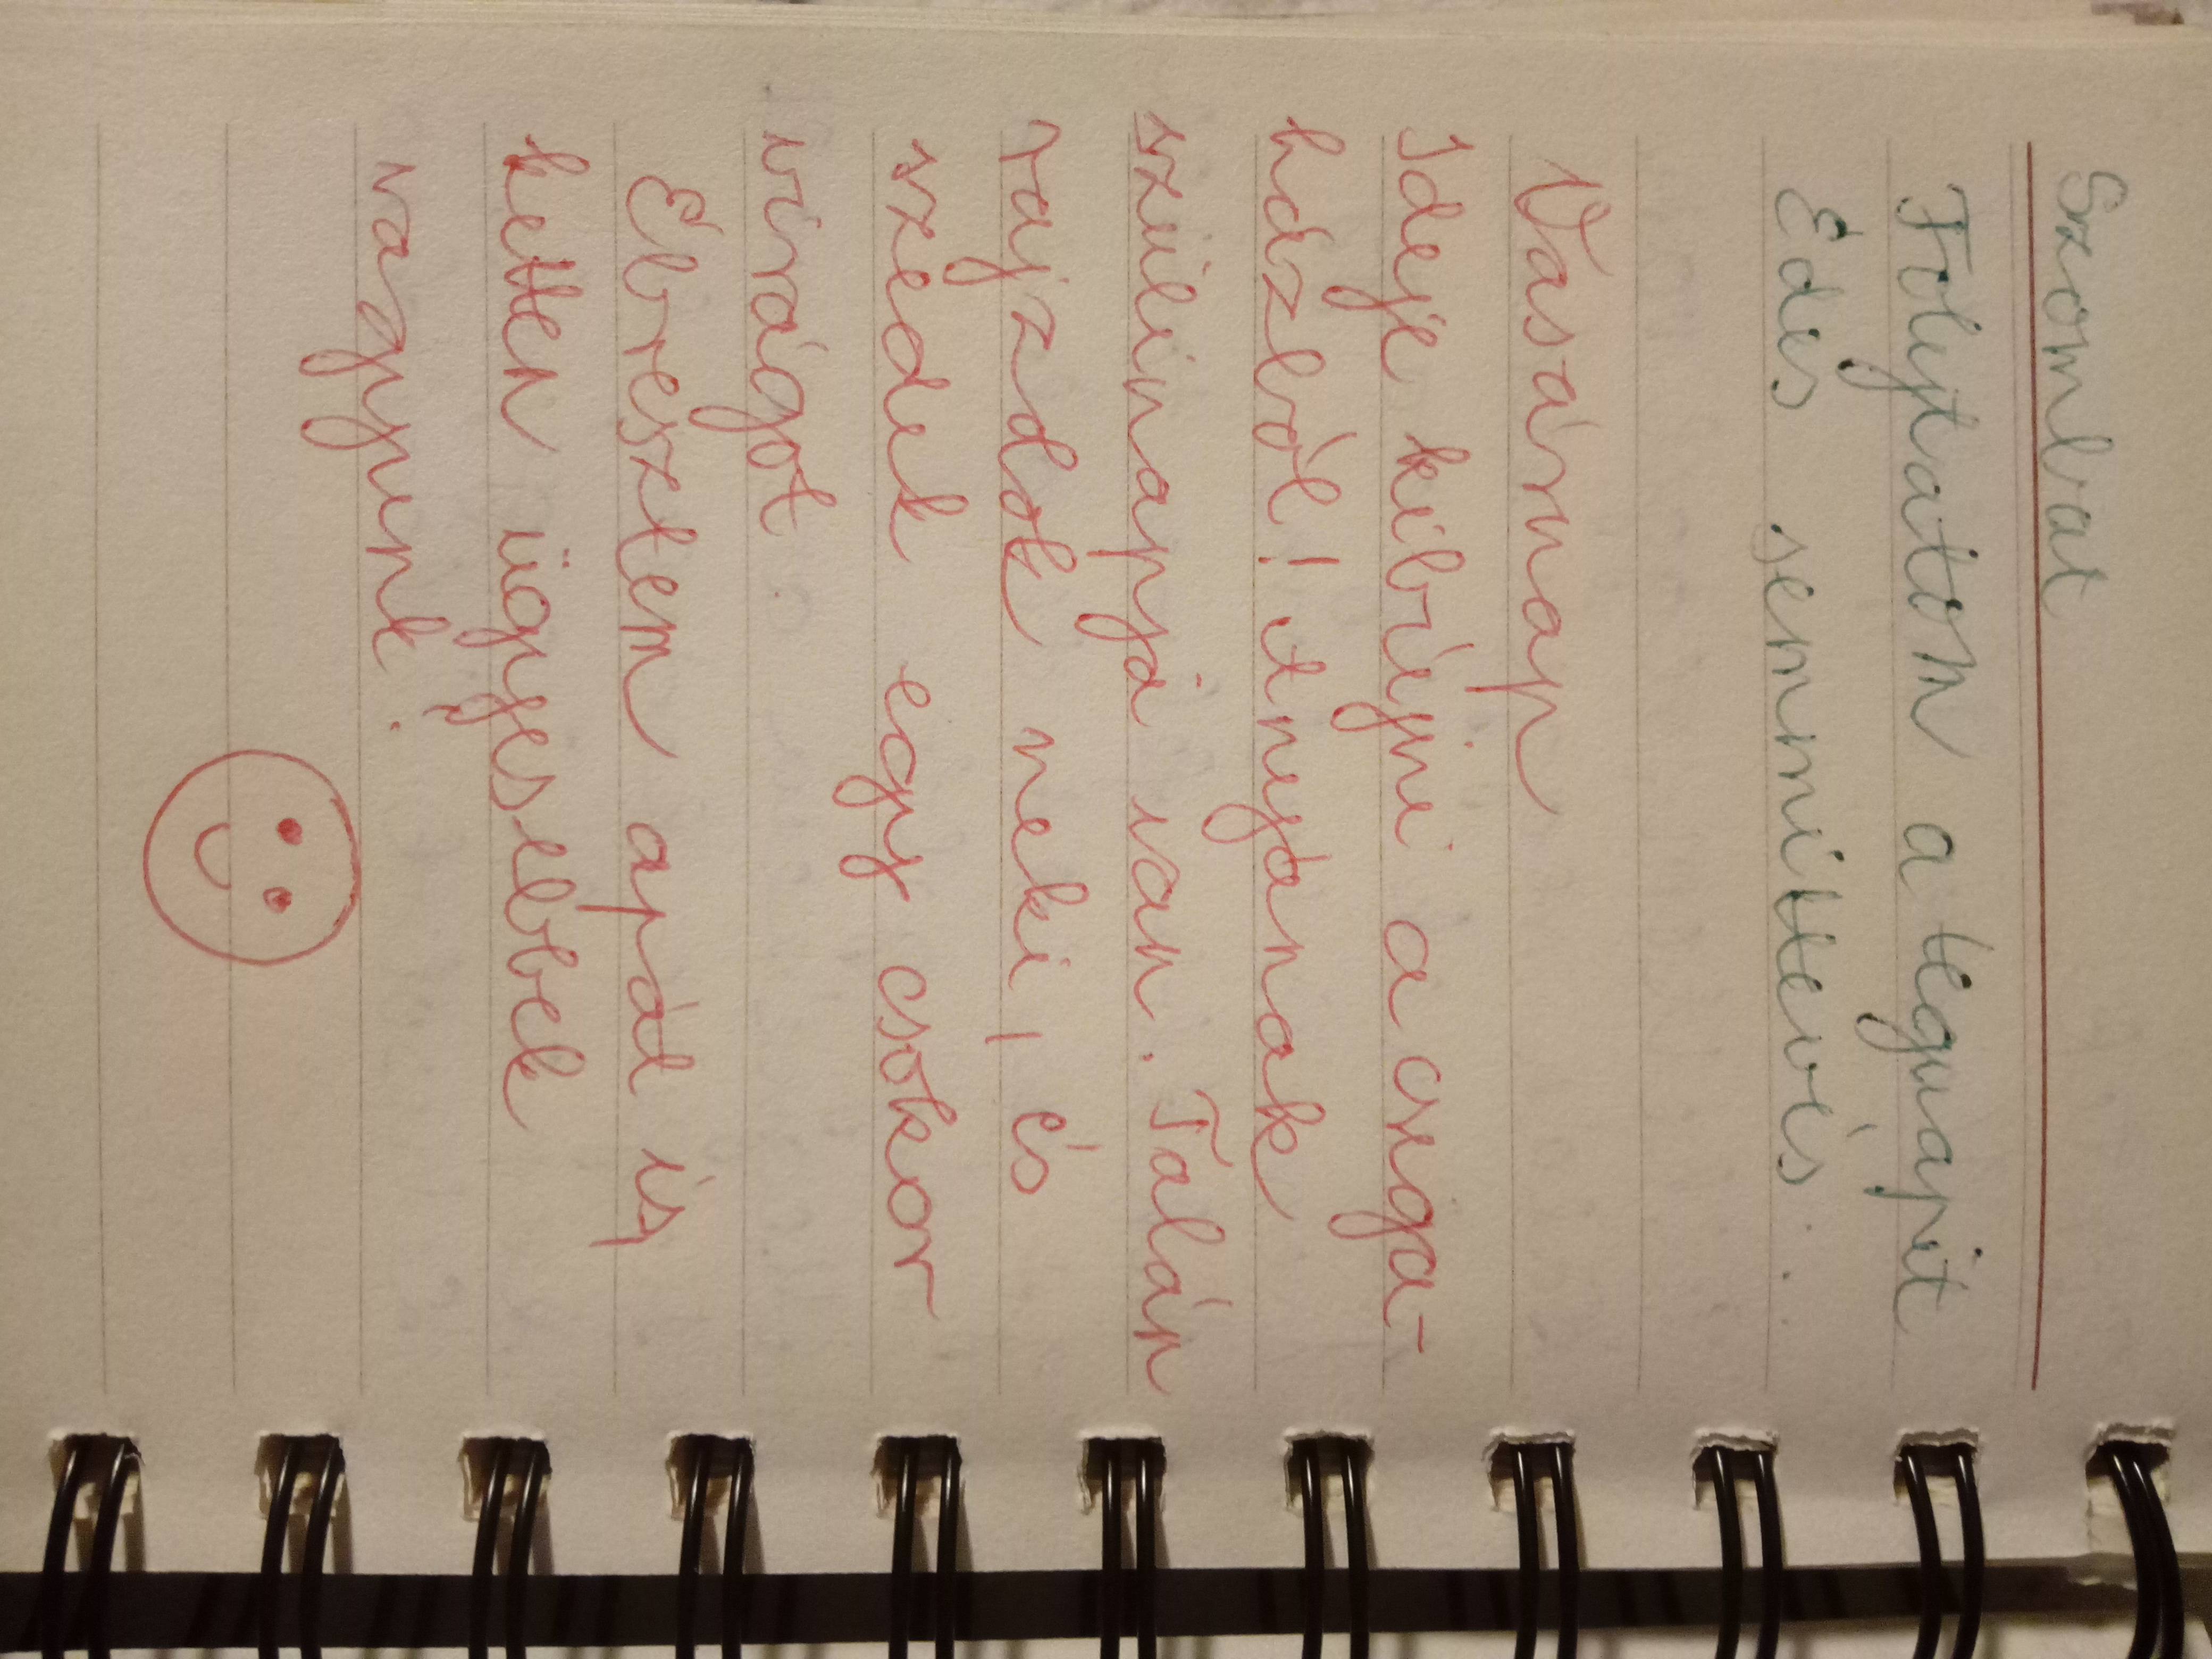 Szombat
Folytatom a tegnapit
Édes semmittevés...
Vasárnap
Ideje kibújni a csiga-
házból! Anyának
szülinapja van. Talán
rajzolok neki, és
szedek egy csokor
virágot.
Ébresztem apát is,
ketten ügyesebbek
vagyunk.